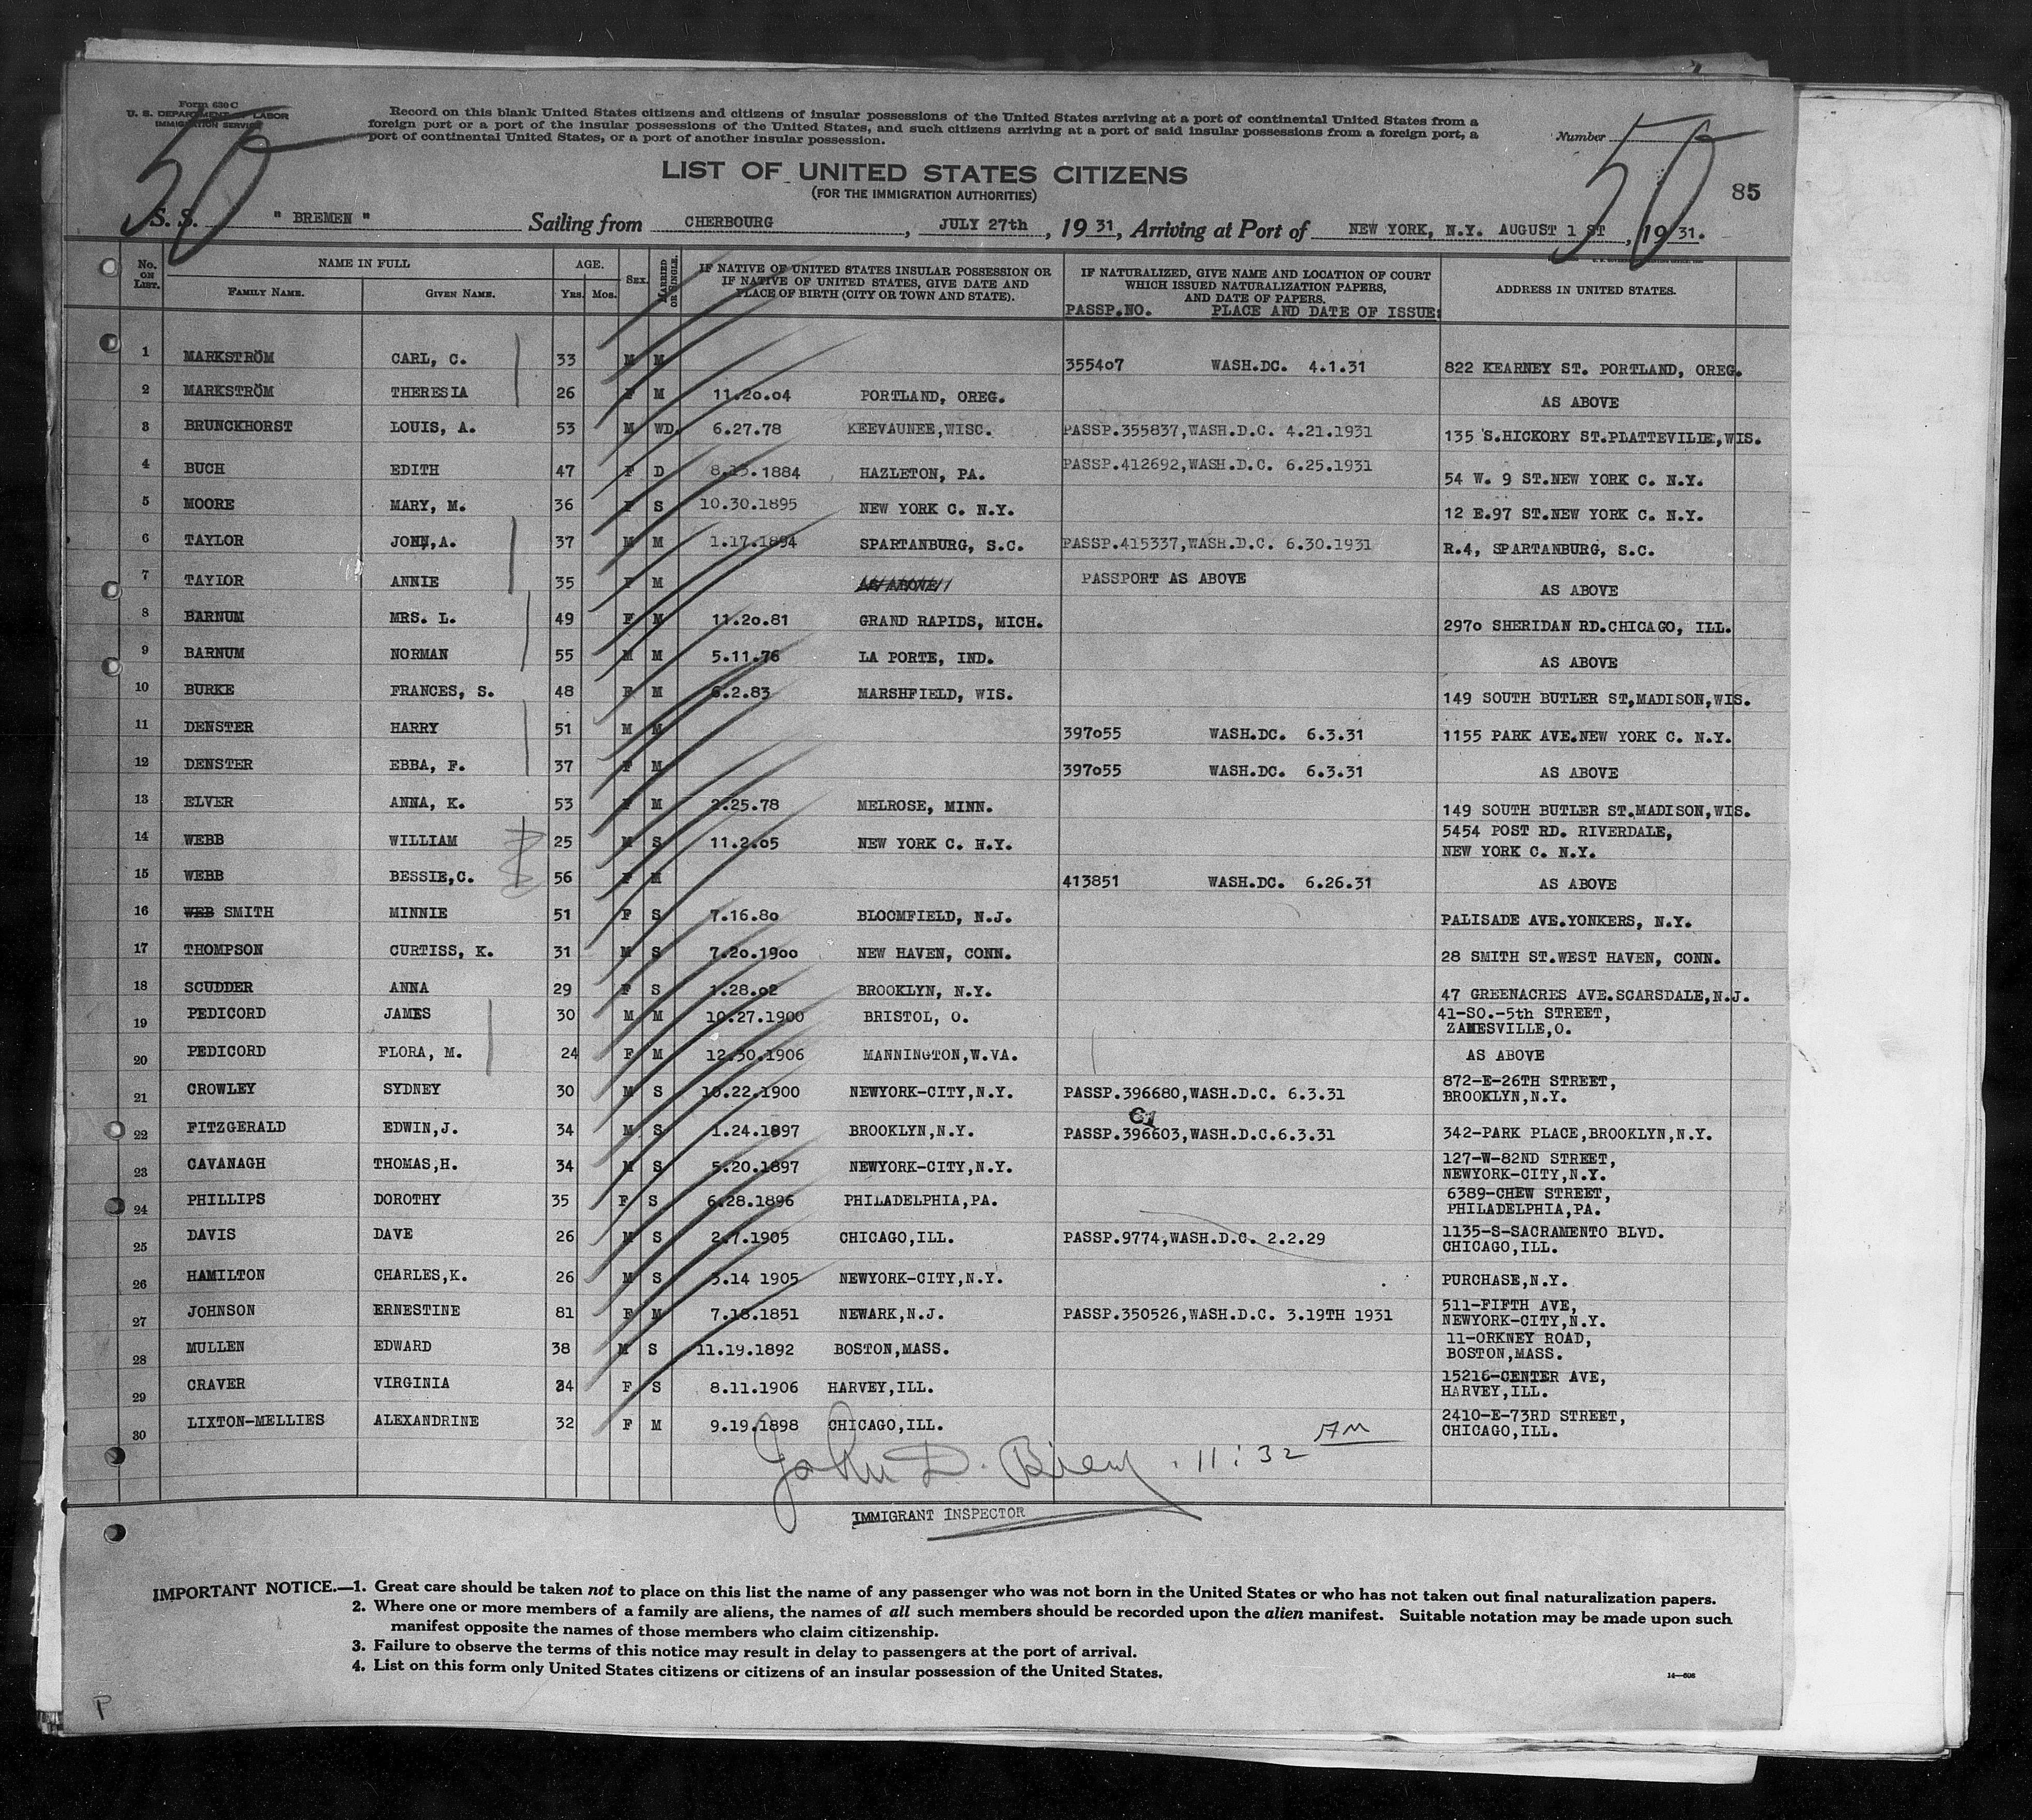 Form 630 C
U. S. DEPARTMENT OF LABOR
IMMIGRATION SERVICE
50
Record on this blank United States citizens and citizens of insular possessions of the United States arriving at a port of continental United States from a
foreign port or a port of the insular possessions of the United States, and such citizens arriving at a port of said insular possessions from a foreign port, a
port of continental United States, or a port of another insular possession.
Number 50
LIST OF UNITED STATES CITIZENS
(FOR THE IMMIGRATION AUTHORITIES)
85
S. S. " BREMEN " Sailing from CHERBOURG, JULY 27th, 1931, Arriving at Port of NEW YORK, N.Y. AUGUST 1 ST, 1931.
No. ON LIST. NAME IN FULL FAMILY NAME. GIVEN NAME. AGE. Yrs. Mos. SEX. MARRIED OR SINGLE. IF NATIVE OF UNITED STATES INSULAR POSSESSION OR IF NATIVE OF UNITED STATES, GIVE DATE AND PLACE OF BIRTH (CITY OR TOWN AND STATE). IF NATURALIZED, GIVE NAME AND LOCATION OF COURT WHICH ISSUED NATURALIZATION PAPERS, AND DATE OF PAPERS. ADDRESS IN UNITED STATES.
PASSP.NO. PLACE AND DATE OF ISSUE:
1 MARKSTRÖM CARL, C. 33 M M 355407 WASH.DC. 4.1.31 822 KEARNEY ST. PORTLAND, OREG.
2 MARKSTRÖM THERESIA 26 F M 11.20.04 PORTLAND, OREG. AS ABOVE
3 BRUNCKHORST LOUIS, A. 53 M WD. 6.27.78 KEEVAUNEE,WISC. PASSP.355837,WASH.D.C. 4.21.1931 135 S.HICKORY ST.PLATTEVILIE,WIS.
4 BUCH EDITH 47 F D 8.13.1884 HAZLETON, PA. PASSP.412692,WASH.D.C. 6.25.1931 54 W. 9 ST.NEW YORK C. N.Y.
5 MOORE MARY, M. 36 F S 10.30.1895 NEW YORK C. N.Y. 12 E.97 ST.NEW YORK C. N.Y.
6 TAYLOR JOHN,A. 37 M M 1.17.1894 SPARTANBURG, S.C. PASSP.415337,WASH.D.C. 6.30.1931 R.4, SPARTANBURG, S.C.
7 TAYIOR ANNIE 35 F M AS ABOVE PASSPORT AS ABOVE AS ABOVE
8 BARNUM MRS. L. 49 F M 11.20.81 GRAND RAPIDS, MICH. 2970 SHERIDAN RD.CHICAGO, ILL.
9 BARNUM NORMAN 55 M M 5.11.76 LA PORTE, IND. AS ABOVE
10 BURKE FRANCES, S. 48 F M 6.2.83 MARSHFIELD, WIS. 149 SOUTH BUTLER ST,MADISON,WIS.
11 DENSTER HARRY 51 M M 397055 WASH.DC. 6.3.31 1155 PARK AVE.NEW YORK C. N.Y.
12 DENSTER EBBA, F. 37 F M 397055 WASH.DC. 6.3.31 AS ABOVE
13 ELVER ANNA, K. 53 F M 2.25.78 MELROSE, MINN. 149 SOUTH BUTLER ST.MADISON,WIS.
14 WEBB WILLIAM 25 M S 11.2.05 NEW YORK C. N.Y. 5454 POST RD. RIVERDALE,
NEW YORK C. N.Y.
15 WEBB BESSIE,C. 56 F M 413851 WASH.DC. 6.26.31 AS ABOVE
16 WEB SMITH MINNIE 51 F S 7.16.80 BLOOMFIELD, N.J. PALISADE AVE.YONKERS, N.Y.
17 THOMPSON CURTISS, K. 31 M S 7.20.1900 NEW HAVEN, CONN. 28 SMITH ST.WEST HAVEN, CONN.
18 SCUDDER ANNA 29 F S 1.28.02 BROOKLYN, N.Y. 47 GREENACRES AVE.SCARSDALE,N.J.
19 PEDICORD JAMES 30 M M 10.27.1900 BRISTOL, O. 41-SO.-5th STREET,
ZANESVILLE,O.
20 PEDICORD FLORA, M. 24 F M 12.30.1906 MANNINGTON,W.VA. AS ABOVE
21 CROWLEY SYDNEY 30 M S 10.22.1900 NEWYORK-CITY,N.Y. PASSP.396680,WASH.D.C. 6.3.31 872-E-26TH STREET,
BROOKLYN,N.Y.
61
22 FITZGERALD EDWIN,J. 34 M S 1.24.1897 BROOKLYN,N.Y. PASSP.396603,WASH.D.C.6.3.31 342-PARK PLACE,BROOKLYN,N.Y.
23 CAVANAGH THOMAS,H. 34 M S 5.20.1897 NEWYORK-CITY,N.Y. 127-W-82ND STREET,
NEWYORK-CITY,N.Y.
24 PHILLIPS DOROTHY 35 F S 6.28.1896 PHILADELPHIA,PA. 6389-CHEW STREET,
PHILADELPHIA,PA.
25 DAVIS DAVE 26 M S 2.7.1905 CHICAGO,ILL. PASSP.9774,WASH.D.C. 2.2.29 1135-S-SACRAMENTO BLVD.
CHICAGO,ILL.
26 HAMILTON CHARLES,K. 26 M S 3.14 1905 NEWYORK-CITY,N.Y. PURCHASE,N.Y.
27 JOHNSON ERNESTINE 81 F M 7.18.1851 NEWARK,N.J. PASSP.350526,WASH.D.C. 3.19TH 1931 511-FIFTH AVE,
NEWYORK-CITY,N.Y.
28 MULLEN EDWARD 38 M S 11.19.1892 BOSTON,MASS. 11-ORKNEY ROAD,
BOSTON,MASS.
29 CRAVER VIRGINIA 24 F S 8.11.1906 HARVEY,ILL. 15216-CENTER AVE,
HARVEY,ILL.
30 LIXTON-MELLIES ALEXANDRINE 32 F M 9.19.1898 CHICAGO,ILL. 2410-E-73RD STREET,
CHICAGO,ILL.
John D. 11:32 AM
IMMIGRANT INSPECTOR
IMPORTANT NOTICE.—1. Great care should be taken not to place on this list the name of any passenger who was not born in the United States or who has not taken out final naturalization papers.
2. Where one or more members of a family are aliens, the names of all such members should be recorded upon the alien manifest. Suitable notation may be made upon such
manifest opposite the names of those members who claim citizenship.
3. Failure to observe the terms of this notice may result in delay to passengers at the port of arrival.
4. List on this form only United States citizens or citizens of an insular possession of the United States.
14—608
P